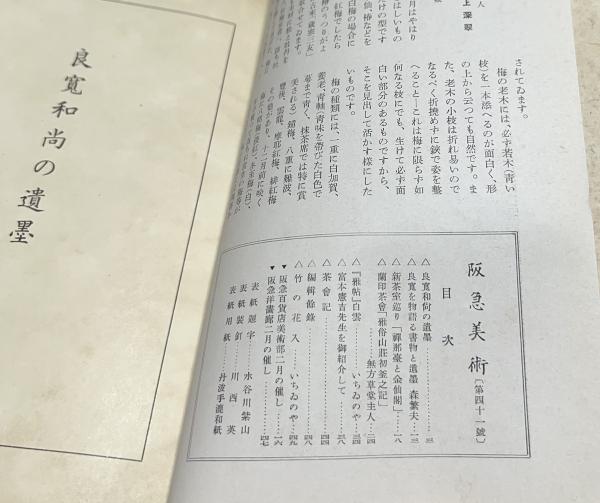 人
上 深 翠
月はやはり
はしいもの
けの型です
仙、椿などを
白梅の場合に
梅のうのりがよ
紅梅でしたら
されてゐます。
梅の老木には、必ず若木(青い
枝)を一本添へるのが面白く、形
の上から云つても自然です。ま
た、老木の小枝は折れ易いので
なるべく折撓めずに鋏で姿を整
へること―これは梅に限らず如
何なる枝にでも、生けて必ず面
白い部分のあるものですから、
そこを見出して活かす樣にした
いものです。
梅の種類には、一重に白加賀、
養老、青軸、青味を帶びた白色で
萼まで靑く、抹茶席では特に賞
美される)鶯梅、八重に難波、
豐後、雲龍、摩耶紅梅、緋紅梅
その他があり、十二月前に咲く
阪急美術〔第四十一號〕
目次
△良寬和尙の遺墨…………三
△良寬を物語る書物と遺墨 森繁夫…八
△新茶室巡り「禪那臺と金仙閣」…一八
△蘭印茶會「雅俗山莊初釜之記」
無方草堂主人…二四
△『雅帖』白雲……いちゐのや…三四
△富本憲吉先生を御紹介して…三八
△茶會記…………四四
△編輯餘錄…………四八
△竹の花入……いちゐのや…四九
▼阪急百貨店美術部二月の催し…一六
▼阪急洋畫廊二月の催し…四七
表紙題字 水谷川紫山
表紙裝釘 川西英
表紙用紙 丹波手漉和紙
良寬和尚の遺墨